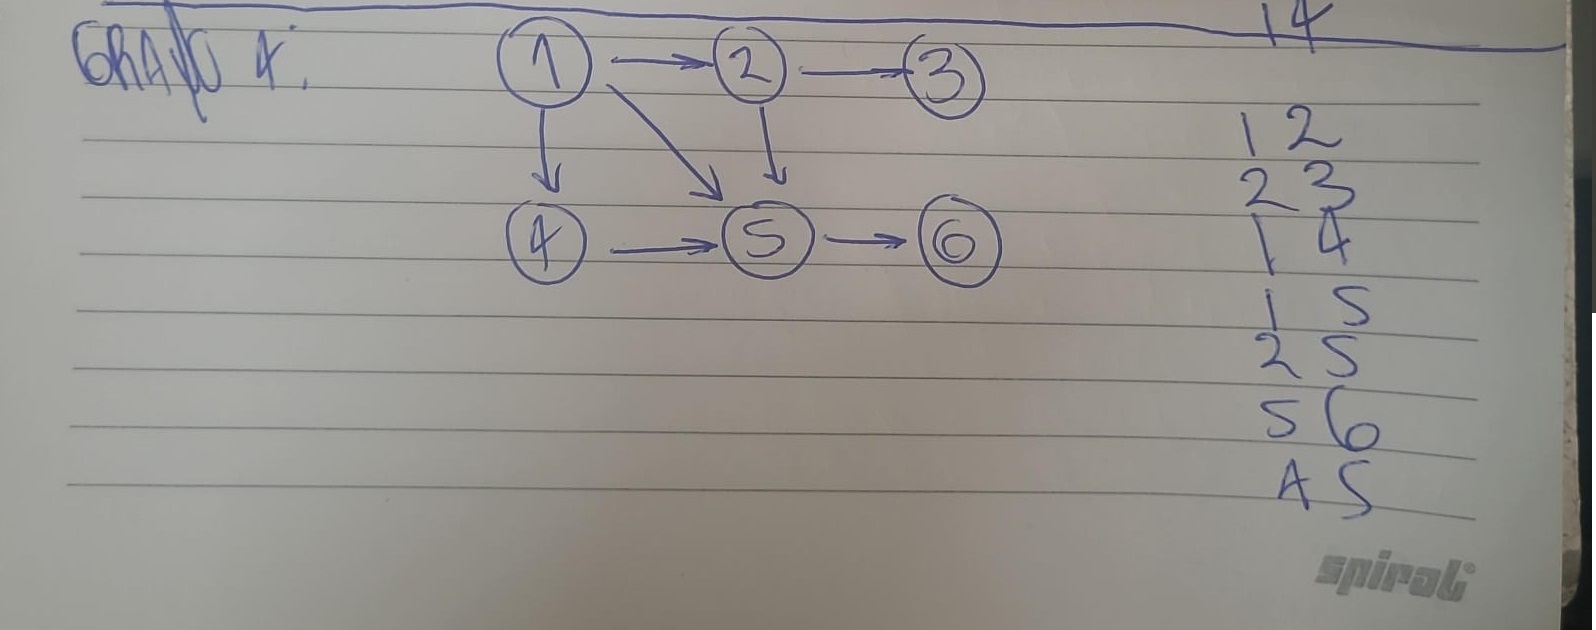 14
GRAFO 4:
1 2 3
4 5 6
1 2
2 3
1 4
1 5
2 5
5 6
4 5
spiral®